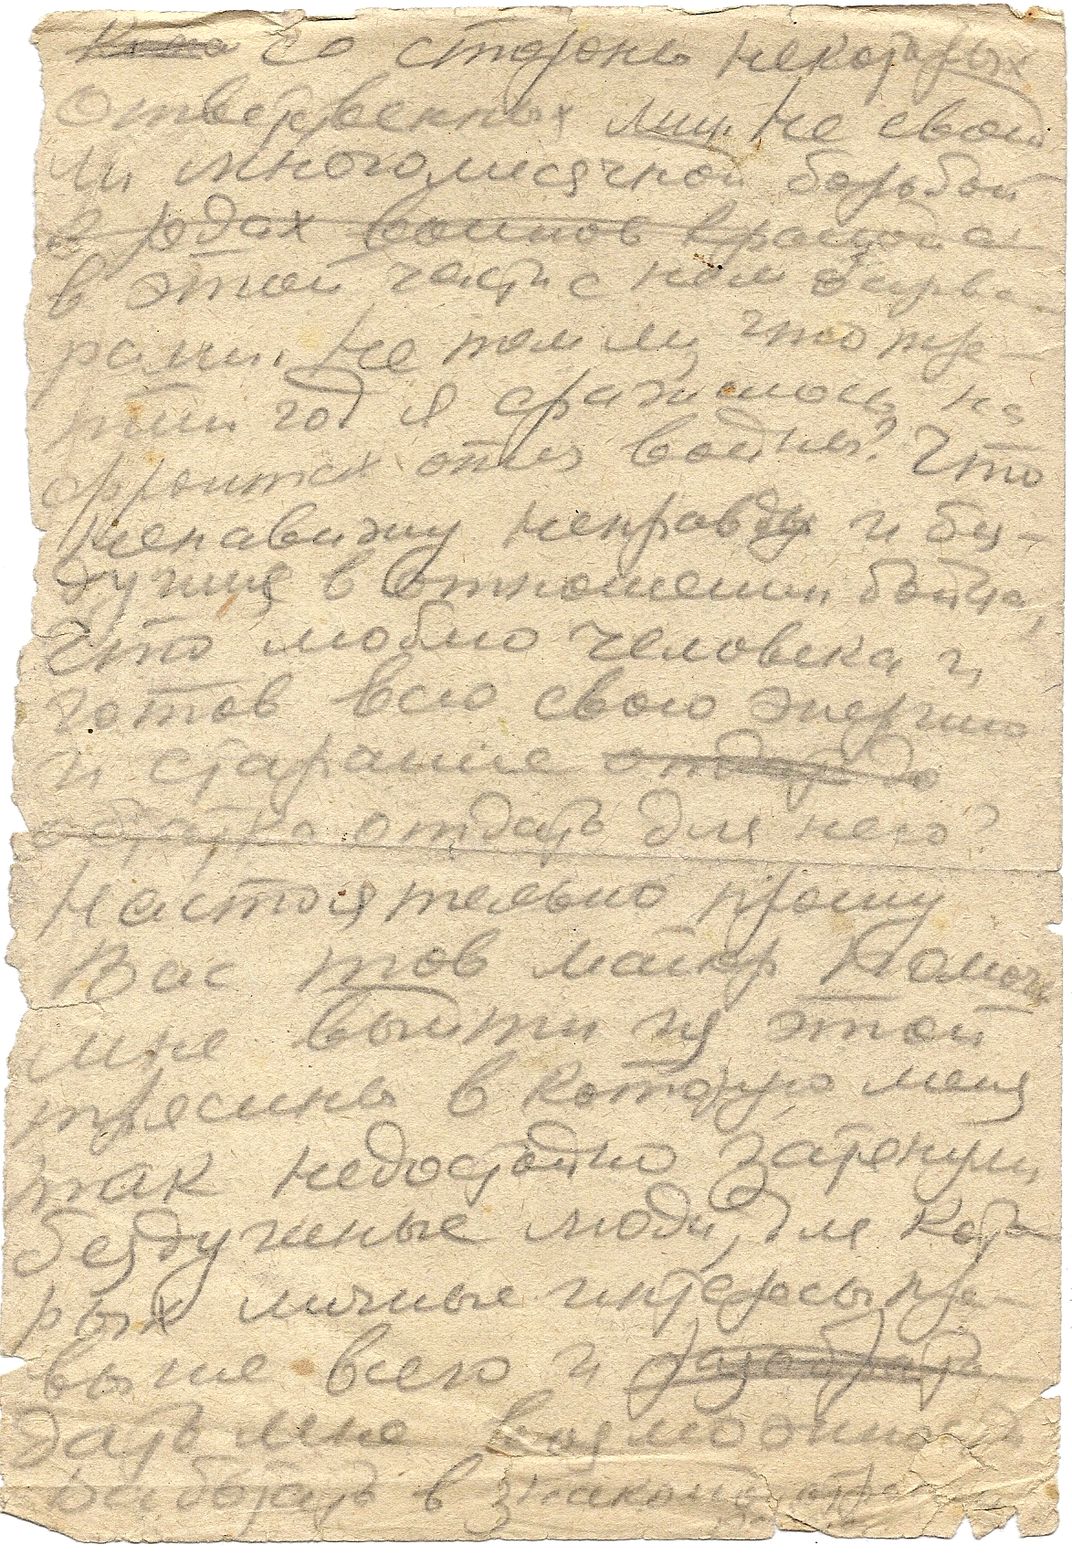 со стороны некоторых
ответственных лиц. Не своей
ли многомесячной борьбой
в рядах воинов
в этой части с нем. варва-
рами. Не тем ли, что тре-
тий год я сражаюсь на
фронтах отеч войны? Что
ненавижу неправду и без-
душие в отношении бойца,
что люблю человека и
готов всю свою энергию
и старание
отдать для него?
Настоятельно прошу
Вас тов майор помочь
мне выйти из этой
трясины в которую меня
так недостойно затянули
бездушные люди, для кото
рых личные интересы пре-
выше всего и
дать мне возможность
работать в